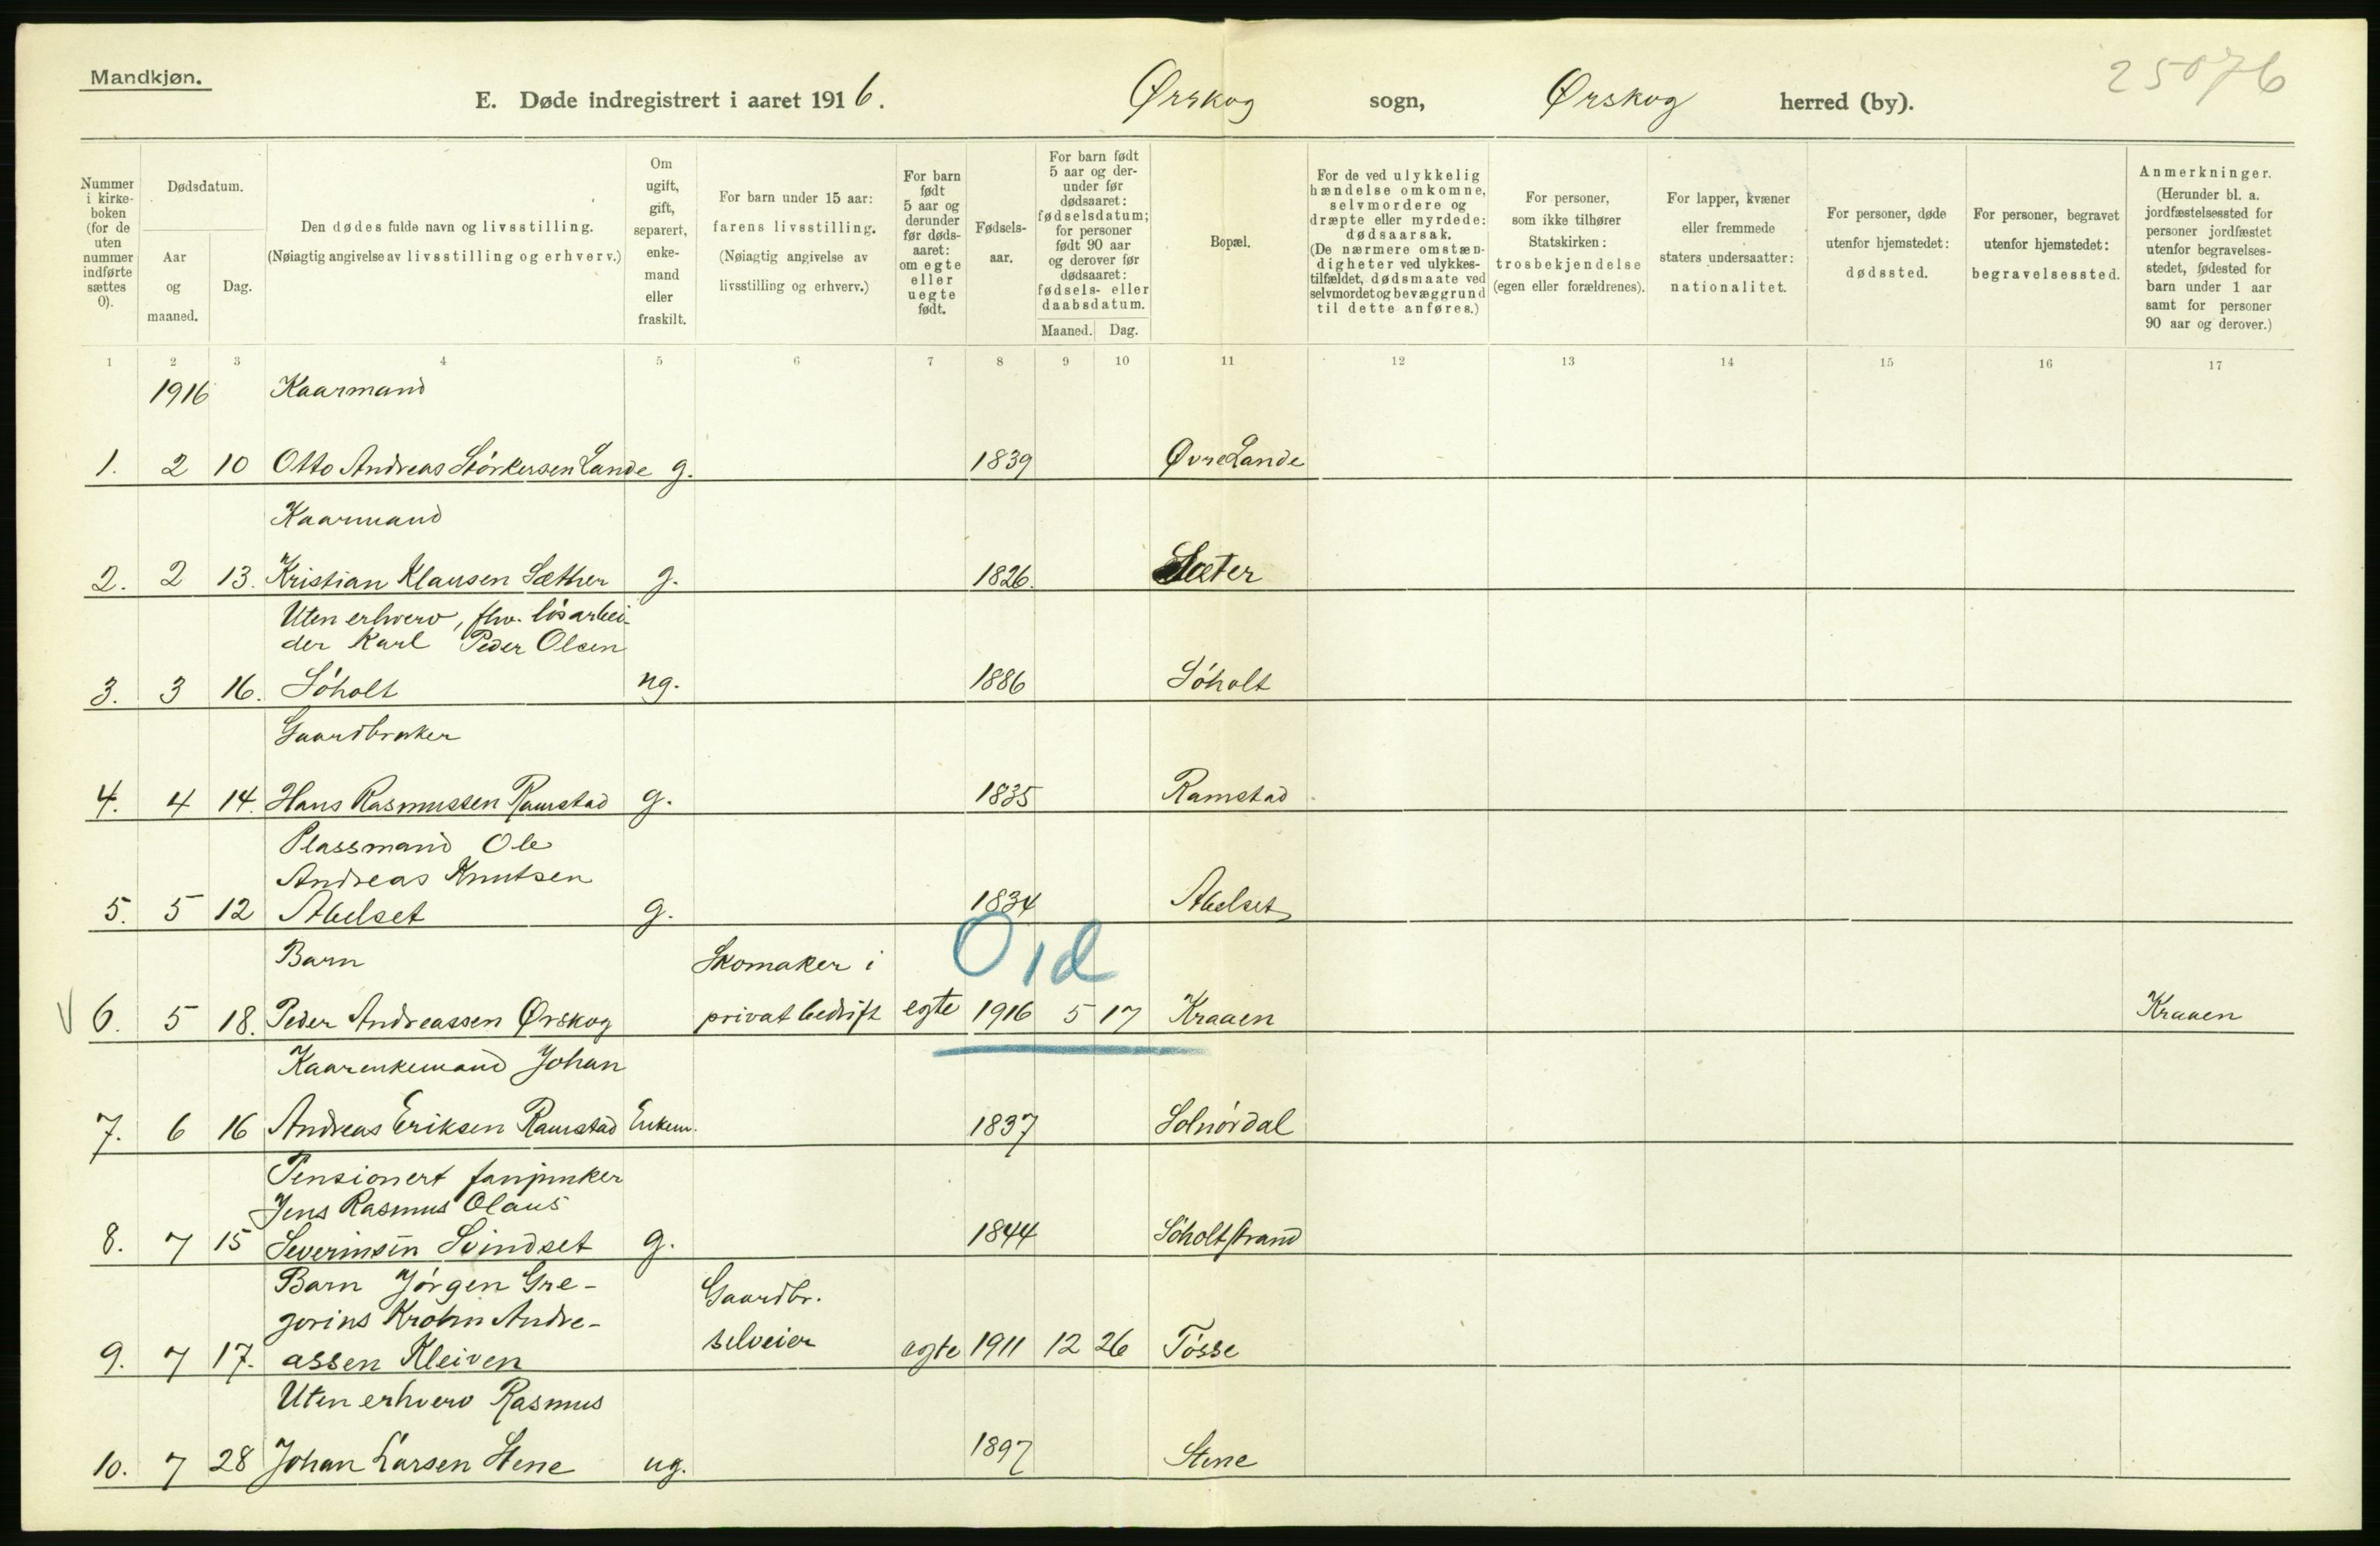 Mandkjøn.
25076
E. Døde indregistrert i aaret 1916. Ørskog sogn, Ørskog herred (by).
Nummer
i kirke-
boken
(for de
uten
nummer
indførte
sættes
0).
Dødsdatum.
Aar
og
maaned.
Dag.
Den dødes fulde navn og livsstilling.
(Nøiagtig angivelse av livsstilling og erhverv.)
Om
ugift,
gift,
separert,
enke-
mand
eller
fraskilt.
For barn under 15 aar:
farens livsstilling.
(Nøiagtig angivelse av
livsstilling og erhverv.)
For barn
født
5 aar og
derunder
før døds-
aaret:
om egte
eller
uegte
født.
Fødsels-
aar.
For barn født
5 aar og der-
under før
dødsaaret:
fødselsdatum;
for personer
født 90 aar
og derover før
dødsaaret:
fødsels- eller
daabsdatum.
Maaned. Dag.
Bopæl.
For de ved ulykkelig
hændelse omkomne,
selvmordere og
dræpte eller myrdede:
dødsaarsak.
(De nærmere omstæn-
digheter ved ulykkes-
tilfældet, dødsmaate ved
selvmordet og bevæggrund
til dette anføres.)
For personer,
som ikke tilhører
Statskirken:
trosbekjendelse
(egen eller forældrenes).
For lapper, kvæner
eller fremmede
staters undersaatter:
nationalitet.
For personer, døde
utenfor hjemstedet:
dødssted.
For personer, begravet
utenfor hjemstedet:
begravelsessted.
Anmerkninger.
(Herunder bl. a.
jordfæstelsessted for
personer jordfæstet
utenfor begravelses-
stedet, fødested for
barn under 1 aar
samt for personer
90 aar og derover.)
1 2 3 4 5 6 7 8 9 10 11 12 13 14 15 16 17
1916 Kaarmand
1. 2 10 Otto Andreas Störkersen Lande g. 1839 Øvre Lande
Kaarmand
2. 2 13. Kristian Klausen Sæther g. 1826. Sæter
Uten erhverv, fhv. lösarbei-
der Karl Peder Olsen
3. 3 16. Söholt ug. 1886 Söholt
Gaardbruker
4. 4 14. Hans Rasmussen Ramstad g. 1835 Ramstad
Plassmand Ole
Andreas Knutsen
5. 5 12 Abelset g. 1834 Abelset
Barn Skomaker i 0 1d
V 6. 5 18. Peder Andreassen Ørskog privat bedrift egte 1916 5 17 Kraaen Kraaen
Kaarenkemand Johan
7. 6 16 Andreas Eriksen Ramstad Enkem. 1837 Solnördal
Pensionert fanejunker
Jens Rasmus Olaus
8. 7 15 Severinsen Svindset g. 1844 Söholtstrand
Barn Jörgen Gre- Gaardbr.
gorius Krohn Andre-
9. 7 17. assen Kleiven selveier egte 1911 12 26 Tösse
Uten erhverv Rasmus
10. 7 28 Johan Larsen Stene ug. 1897 Stene